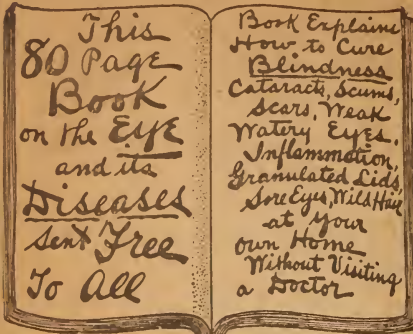 This
80 Page
Book
on the EyE
and its
Diseases
sent Free
To All
Book Explains
How to Cure
Blindness
Cataracts, Scums,
Scars, Weak
Watery Eyes,
Inflammation,
Granulated Lids,
Sore Eyes, Wild Hair
at your
own Home
Without Visiting
a Doctor